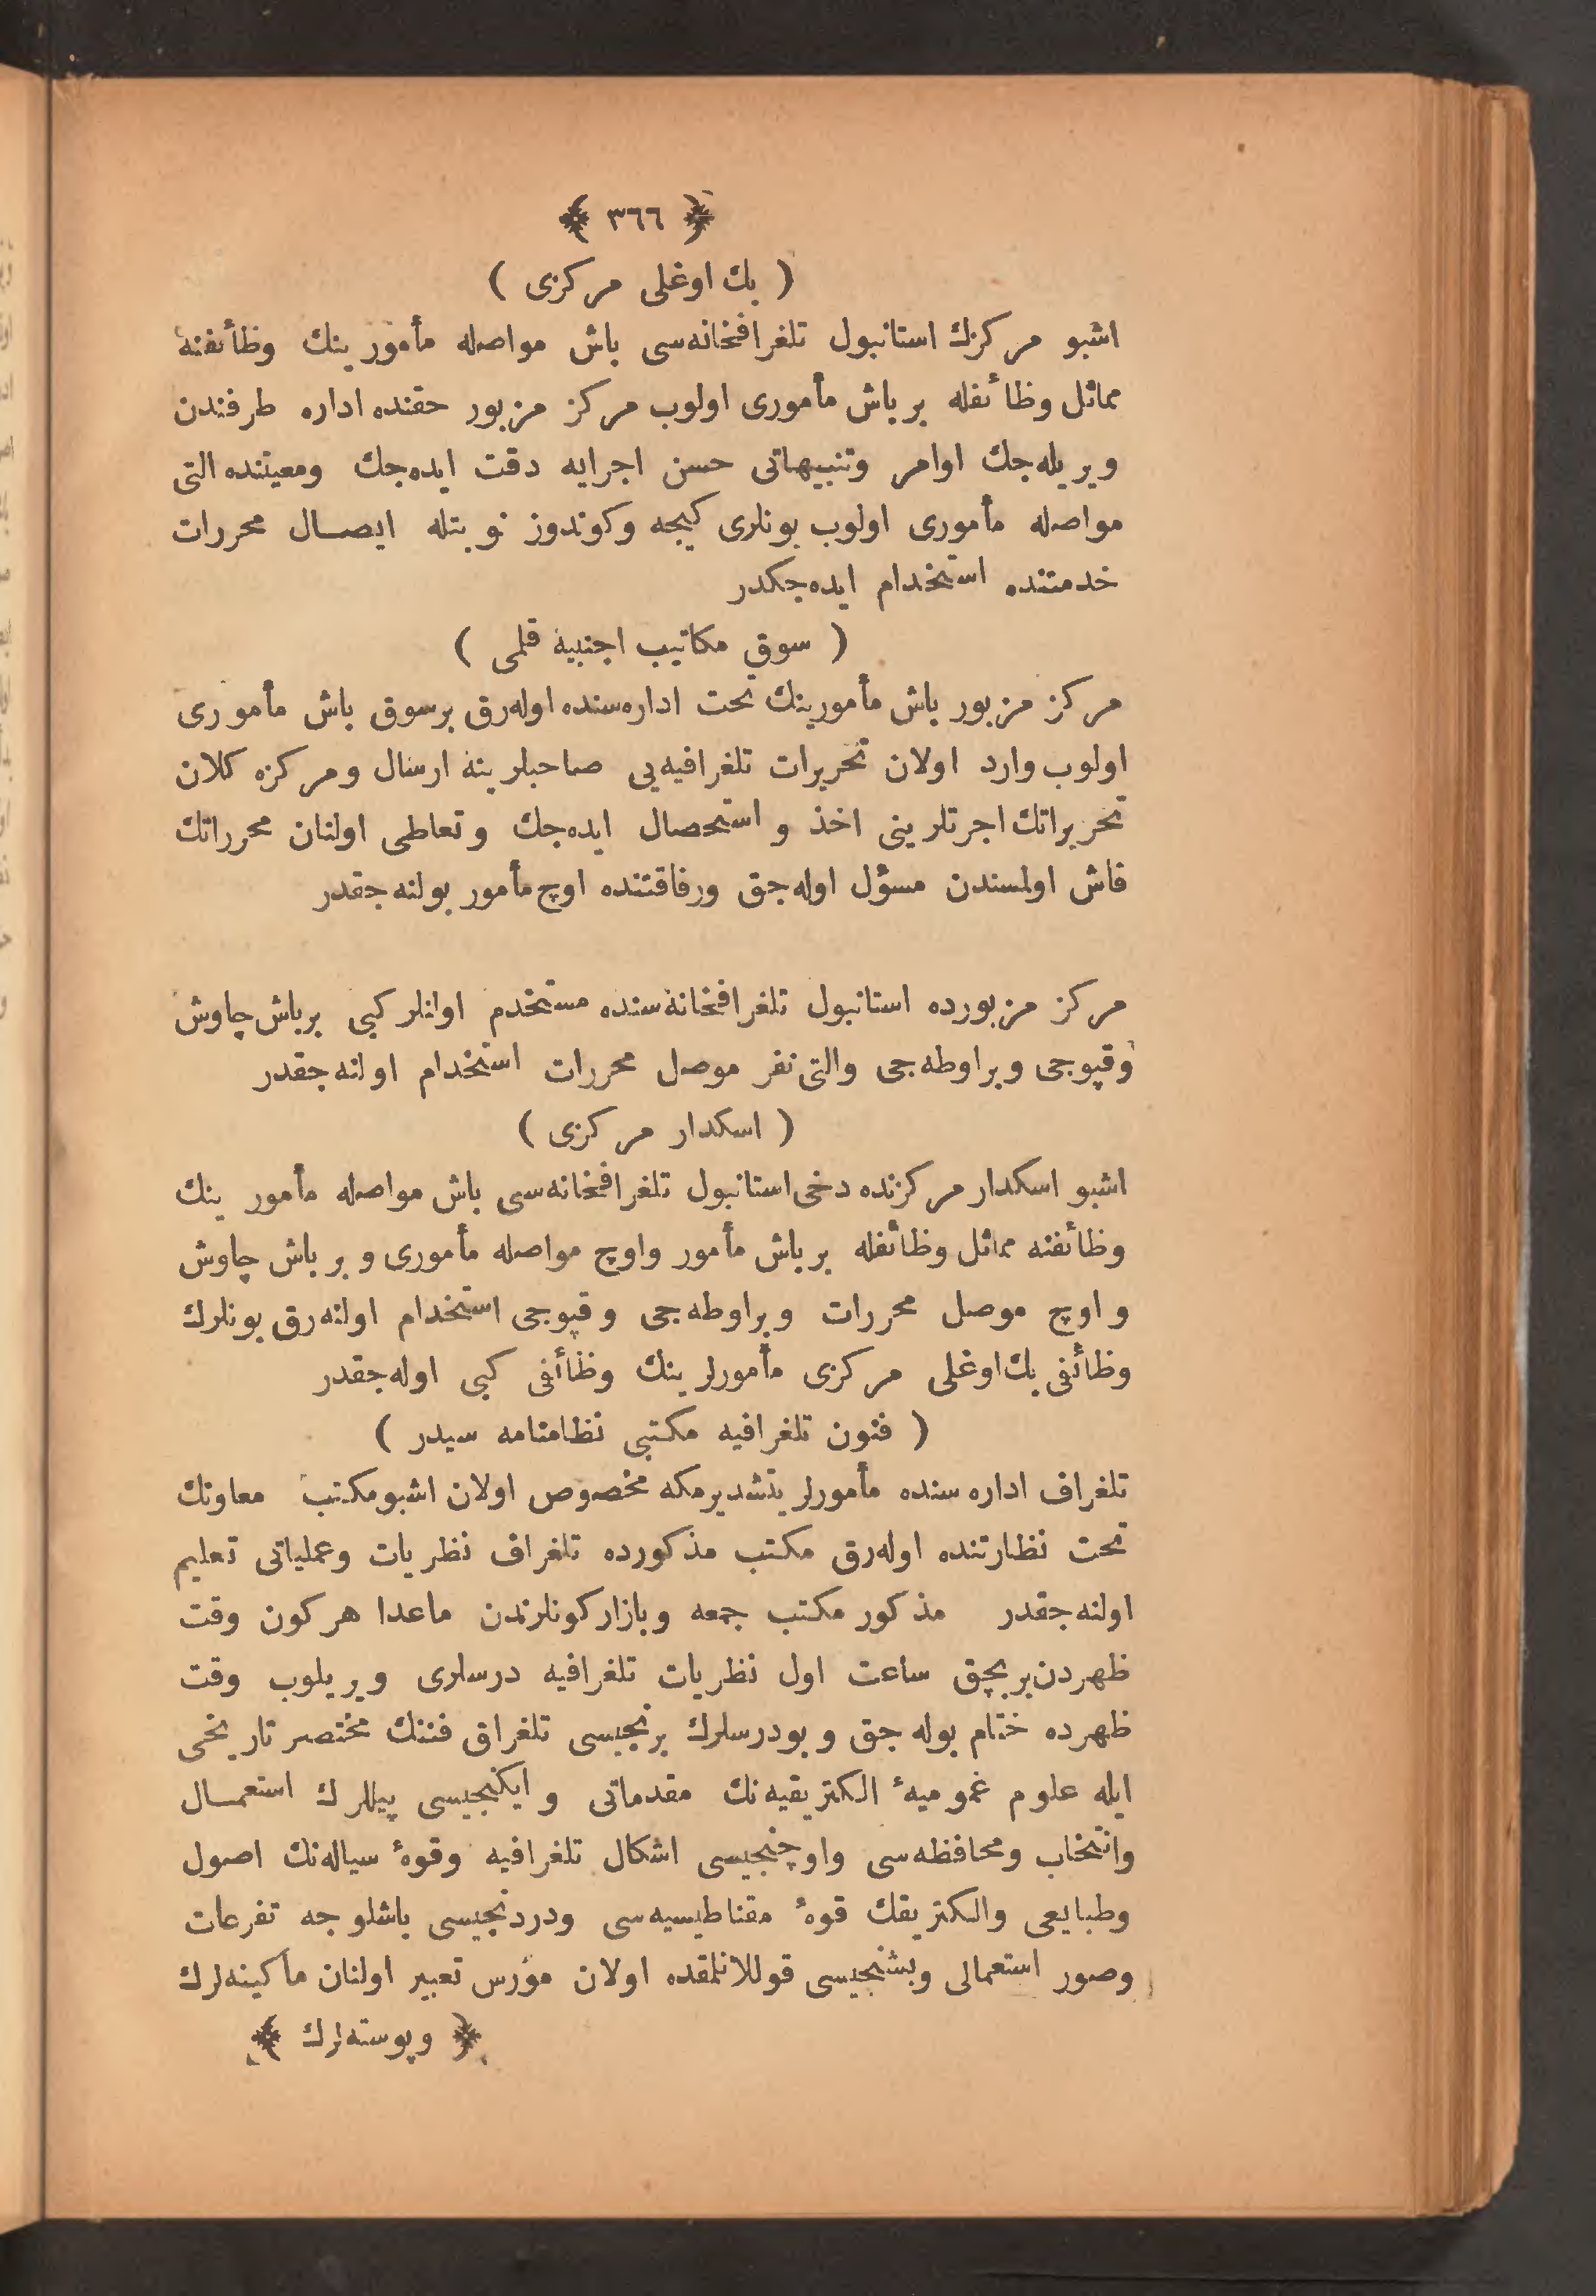 ﴿ ٣٦٦ ﴾
( بك اوغلى مركزى )
اشبو مركزك استانبول تلغرافخانه‌سى باش مواصله مأمورينك وظائفنه
مماثل وظائفله برباش مأمورى اولوب مركز مزبور حقنده اداره طرفندن
ويريله‌جك اوامر وتنبيهاتى حسن اجرايه دقت ايده‌جك ومعيتنده التى
مواصله مأمورى اولوب بونلرى كيجه وكوندوز نوبتله ايصال محررات
خدمتنده استخدام ايده‌جكدر
( سوق مكاتيب اجنبيه قلمى )
مركز مزبور باش مأمورينك تحت اداره‌سنده اوله‌رق برسوق باش مأمورى
اولوب وارد اولان تحريرات تلغرافيه‌يى صاحبلرينه ارسال ومركزه كلان
تحريراتك اجرتلرينى اخذ و استحصال ايده‌جك و تعاطى اولنان محرراتك
فاش اولمسندن مسؤل اوله‌جق ورفاقتنده اوچ مأمور بولنه‌جقدر
مركز مزبورده استانبول تلغرافخانه‌سنده مستخدم اولنلر كبى برباش چاوش
وقپوجى وبراوطه‌جى والتى نفر موصل محررات استخدام اولنه‌جقدر
( اسكدار مركزى )
اشبو اسكدار مركزنده دخى استانبول تلغرافخانه‌سى باش مواصله مأمورينك
وظائفنه مماثل وظائفله برباش مأمور واوچ مواصله مأمورى وبر باش چاوش
واوچ موصل محررات وبراوطه‌جى وقپوجى استخدام اولنه‌رق بونلرك
وظائفى بك‌اوغلى مركزى مأمورلرينك وظائفى كبى اوله‌جقدر
( فنون تلغرافيه مكتبى نظامنامه سيدر )
تلغراف اداره سنده مأمورلر يتشديرمكه مخصوص اولان اشبومكتب معاونك
تحت نظارتنده اوله‌رق مكتب مذكورده تلغراف نظريات وعملياتى تعليم
اولنه‌جقدر مذكور مكتب جمعه وبازاركونلرندن ماعدا هركون وقت
ظهردن‌بربچق ساعت اول نظريات تلغرافيه درسلرى ويريلوب وقت
ظهرده ختام بوله جق وبودرسلرك برنجيسى تلغراق فننك مختصر تاريخى
ايله علوم عموميهٔ الكتريقيه‌نك مقدماتى وايكنجيسى پيللرك استعمال
وانتخاب ومحافظه‌سى واوچنجيسى اشكال تلغرافيه وقوهٔ سياله‌نك اصول
وطبايعى والكتريقك قوهٔ مقناطيسيه‌سى ودردنجيسى باشلوجه تفرعات
وصور استعمالى وبشنجيسى قوللانلمقده اولان مورس تعبير اولنان ماكينه‌لرك
﴿ وپوسته‌لرك ﴾